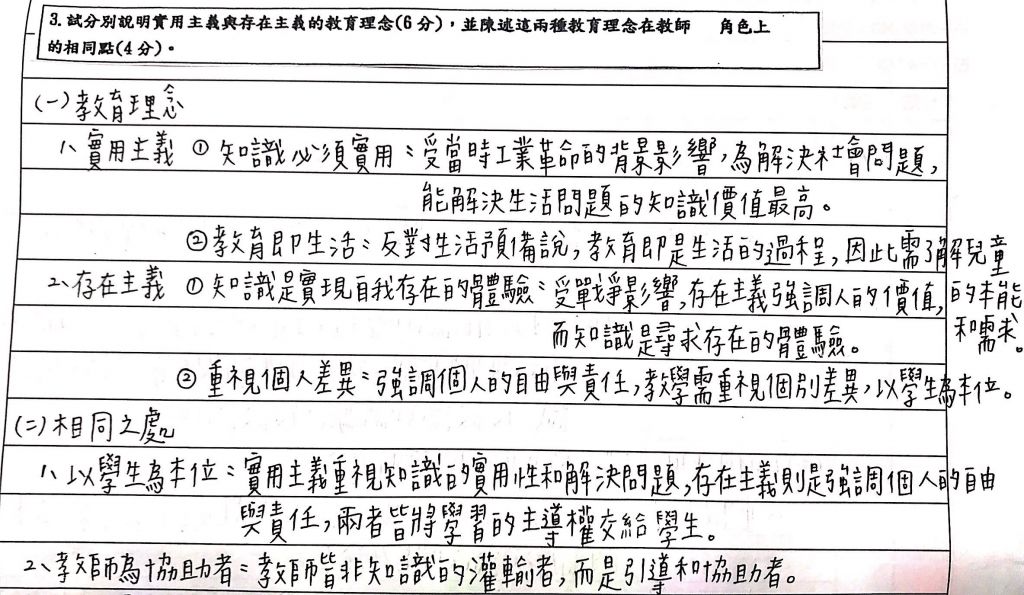 3. 試分別說明實用主義與存在主義的教育理念(6 分)，並陳述這兩種教育理念在教師 角色上
的相同點(4 分)。
(一)教育理念
1、實用主義 ① 知識必須實用：受當時工業革命的背景影響，為解決社會問題，
能解決生活問題的知識價值最高。
②教育即生活：反對生活預備說，教育即是生活的過程，因此需了解兒童
的本能和需求。
2、存在主義 ① 知識是實現自我存在的體驗：受戰爭影響，存在主義強調人的價值，
而知識是尋求存在的體驗。
② 重視個人差異：強調個人的自由與責任，教學需重視個別差異，以學生為本位。
(二)相同之處
1、以學生為本位：實用主義重視知識的實用性和解決問題，存在主義則是強調個人的自由
與責任，兩者皆將學習的主導權交給學生。
2、教師為協助者：教師皆非知識的灌輸者，而是引導和協助者。